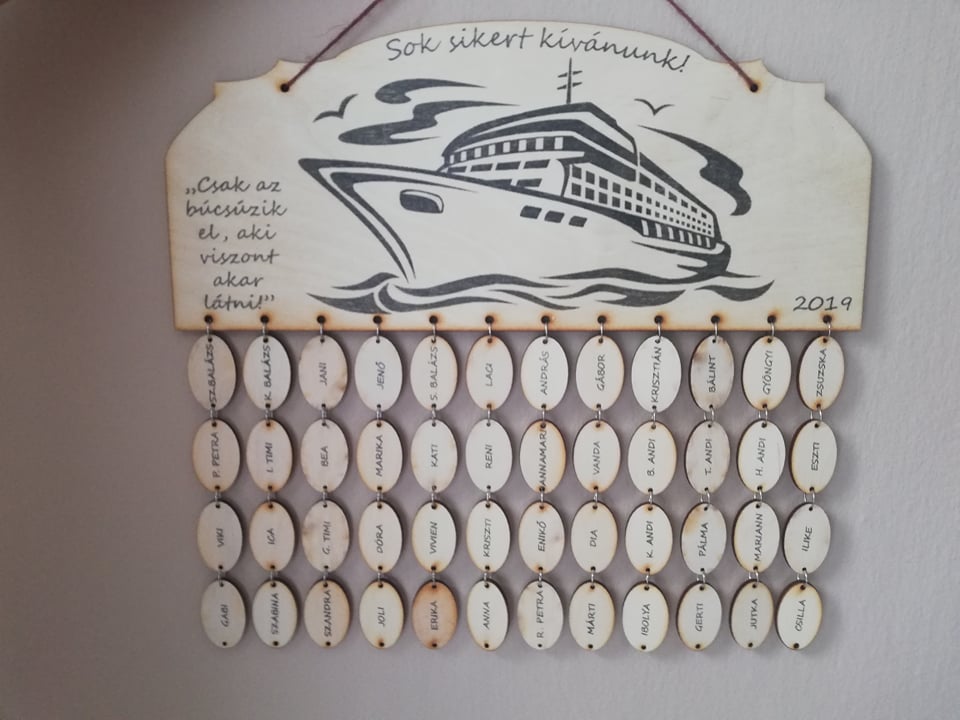 Sok sikert kívánunk!
„Csak az
búcsúzik
el, aki
viszont
akar
látni!”
2019
SZ.BALÁZS K. BALÁZS JANI JENŐ S. BALÁZS LACI ANDRÁS GÁBOR KRISZTIÁN BÁLINT GYÖNGYI ZSUZSKA
P. PETRA I. TIMI BEA MARIKA KATI RENI ANNAMARI VANDA B. ANDI T. ANDI H. ANDI ESZTI
VIKI ICA G. TIMI DÓRA VIVIEN KRISZTI ENIKŐ DIA K. ANDI PÁLMA MARIANN ILIKE
GABI SZABINA SZANDRA JOLI ERIKA ANNA R. PETRA MÁRTI IBOLYA GERTI JUTKA CSILLA